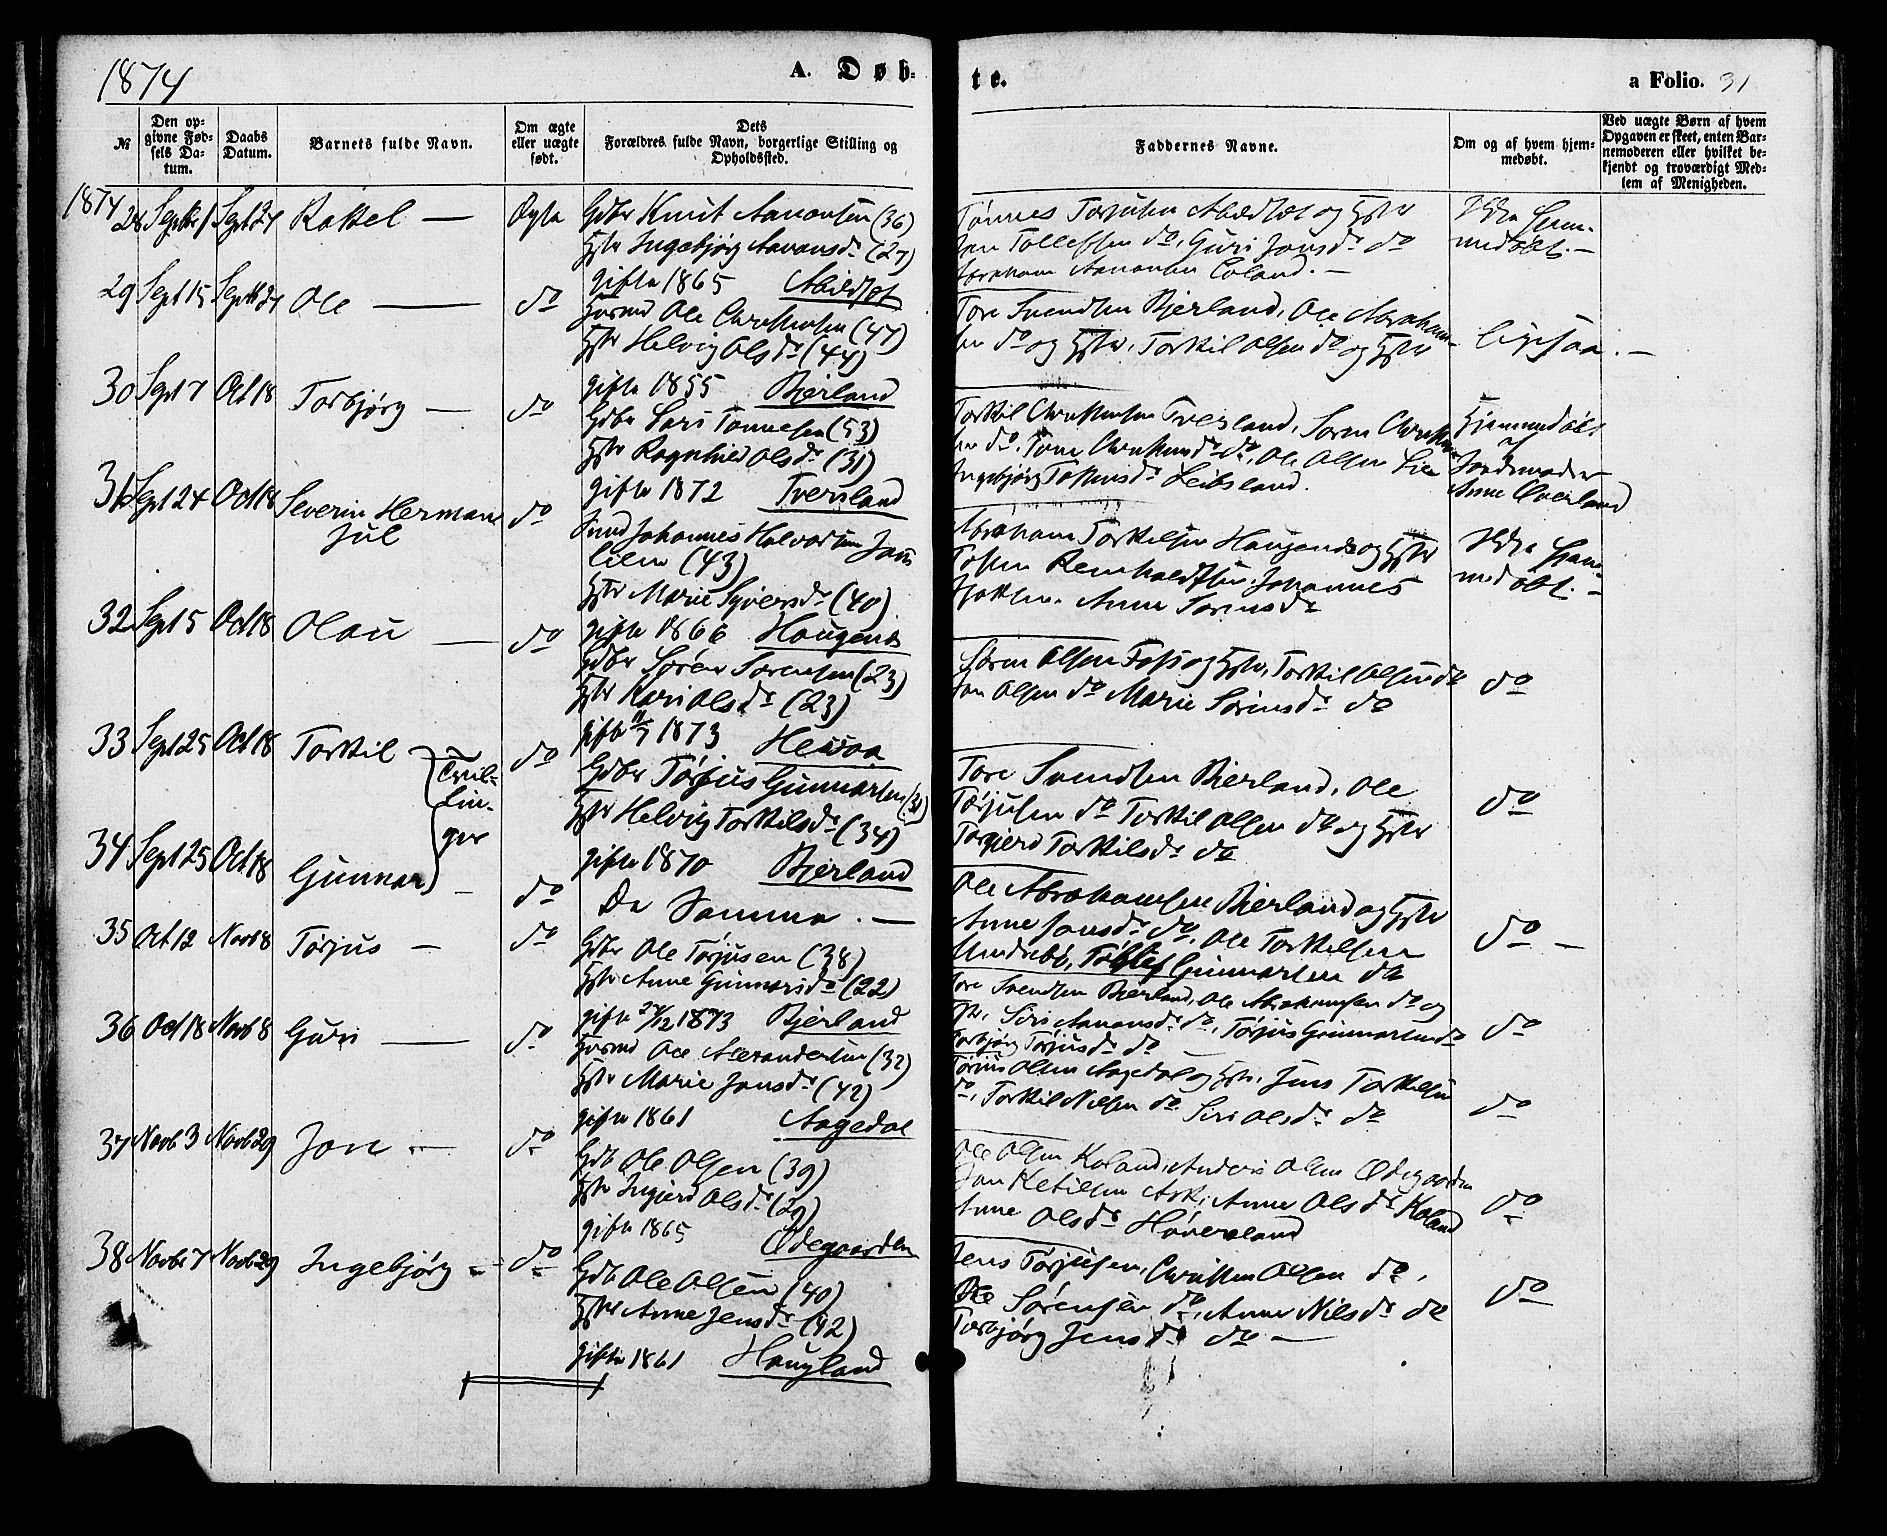 1874
A. Døb-
te.
a Folio. 31
№
Den op-
givne Fød-
sels Da-
tum.
Daabs
Datum.
Barnets fulde Navn.
Om ægte
eller uægte
født.
Dets
Forældres fulde Navn, borgerlige Stilling og
Opholdssted.
Faddernes Navne.
Om og af hvem hjem-
medøbt.
Ved uægte Børn af hvem
Opgaven er skeet, enten Bar-
nemoderen eller hvilket be-
kjendt og troværdigt Med-
lem af Menigheden.
1874
28 Septbr 1 Sept 27 Rakkel — Ægte Gdbr Knut Aanonsen (36)
Hstr Ingebjørg Aanonsdr (27)
gifte 1865 Abildsøt
Tønnes Tørjusen Abildsøt og Hstr
Jon Tollefsen do, Guri Jonsdr do
Abraham Aanonsen
medøbt. —
29 Sept 15 Sept 27 Ole — do Husmd Ole Christensen (47)
Hstr Helvig Olsdr (44)
gifte 1855 Bjerland
Tore Svendsen Bjerland, Ole Abraham-
sen do og Hstr, Torkil Olsen do og Hstr
ligesaa. —
30 Sept 7 Oct 18 Torbjørg — do Gdbr Lars Tønnesen (53)
Hstr Ragnhild Olsdr (31)
gifte 1872 Tversland
Torkil Christensen Tversland, Soren Christen-
sen do, Tone Christensdr do, Ole Olsen Lien
Ingebjørg
Hjemmedøbt
af
Jordemoder
Anne Øverland
31 Sept 24 Oct 18 Severin Hermann
Jul
do
Johannes Halvorsen
(43)
Hstr Marie Syversdr (40)
gifte 1866 Haugenes
Abraham Torkelsen Haugenes og Hstr
Johannes
Anne Sørensdr
medøbt. —
32 Sept 5 Oct 18 Olau — do Gdbr Søren Sørensen (23)
Hstr Kari Olsdr (23)
gifte 11/7 1873
Søren Olsen Foss og Hstr, Torkil Olsen do
Jon Olsen do Marie Sørensdr do
do
33 Sept 25 Oct 18 Torkil
Tvil-
lin-
ger
do Gdbr Tørjus Gunnarsen (31)
Hstr Helvig Torkilsdr (34)
gifte 1870 Bjerland
Tore Svendsen Bjerland, Ole
Tørjusen do Torkil Olsen do og Hstr
Torgjerd Torkilsdr do
do
34 Sept 25 Oct 18 Gunnar — do De Samme. —
Ole Abrahamsen Bjerland og Hstr
Anne Jonsdr do, Ole Torkelsen
Undrebø, Tollef Gunnarsen do
do —
35 Oct 12 Novb 8 Tørjus — do Gdbr Ole Tørjusen (38)
Hstr Anne Gunnarsdr (22)
gifte 27/12 1873 Bjerland
Tore Svendsen Bjerland, Ole Abrahamsen do og
Hstr, Siri Aanonsdr do, Tørjus Gunnarsen do
Torbjørg Tørjusdr do
do
36 Oct 18 Novb 8 Guri — do Husmd Ole Alexandersen (32)
Hstr Marie Jonsdr (42)
gifte 1861 Aagedal
Tørjus Olsen Aagedal og Hstr, Jens Torkelsen
do, Torkil Nilsen do Siri Olsdr do
do
37 Novb 3 Novb 29 Jon — do Gdb Ole Olsen (39)
Hstr Ingjerd Olsdr (29)
gifte 1865 Ødegaarden
Ole Olsen Koland, Anders Olsen Ødegaarden
Jon Ketilsen Ask, Anne Olsdr Koland
Anne Olsdr Høversland
do
38 Novbr 7 Novb 29 Ingebjørg — do Gdb Ole Olsen (40)
Hstr Anne Jensdr (42)
gifte 1861 Haugland
Jens Tørjusen, Christen Olsen do,
Ole Sørensen do, Anne Nilsdr do
Torbjørg Jensdr do —
do